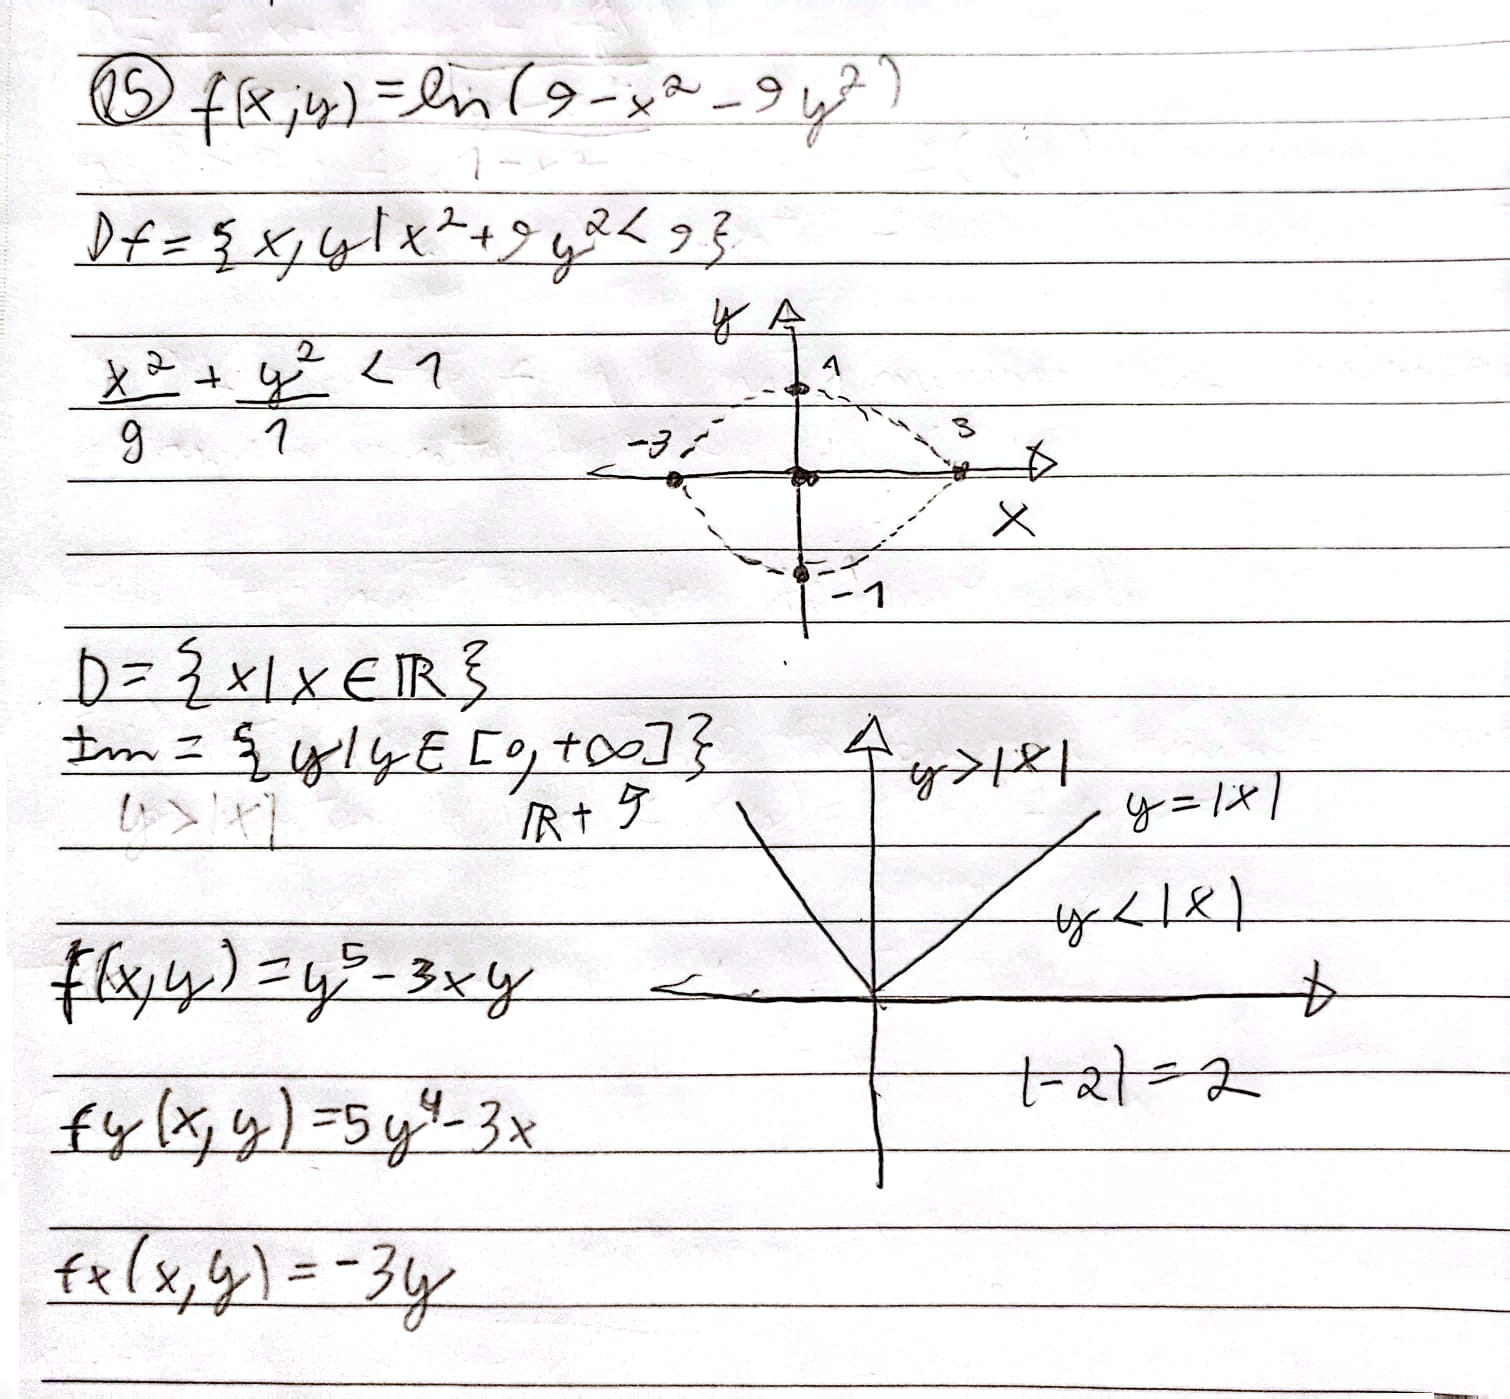 15 f(x;y)=ln(9-x²-9y²)
Df={x,y|x²+9y²<9}
y
x²/9 + y²/1 <1
1
-3
3
x
-1
D={x|x∈ℝ}
Im={y|y∈[0,+∞]}
y>|x|
y=|x|
y>|x|
ℝ+
y<|x|
f(x,y)=y⁵-3xy
|-2|=2
fy(x,y)=5y⁴-3x
fx(x,y)=-3y